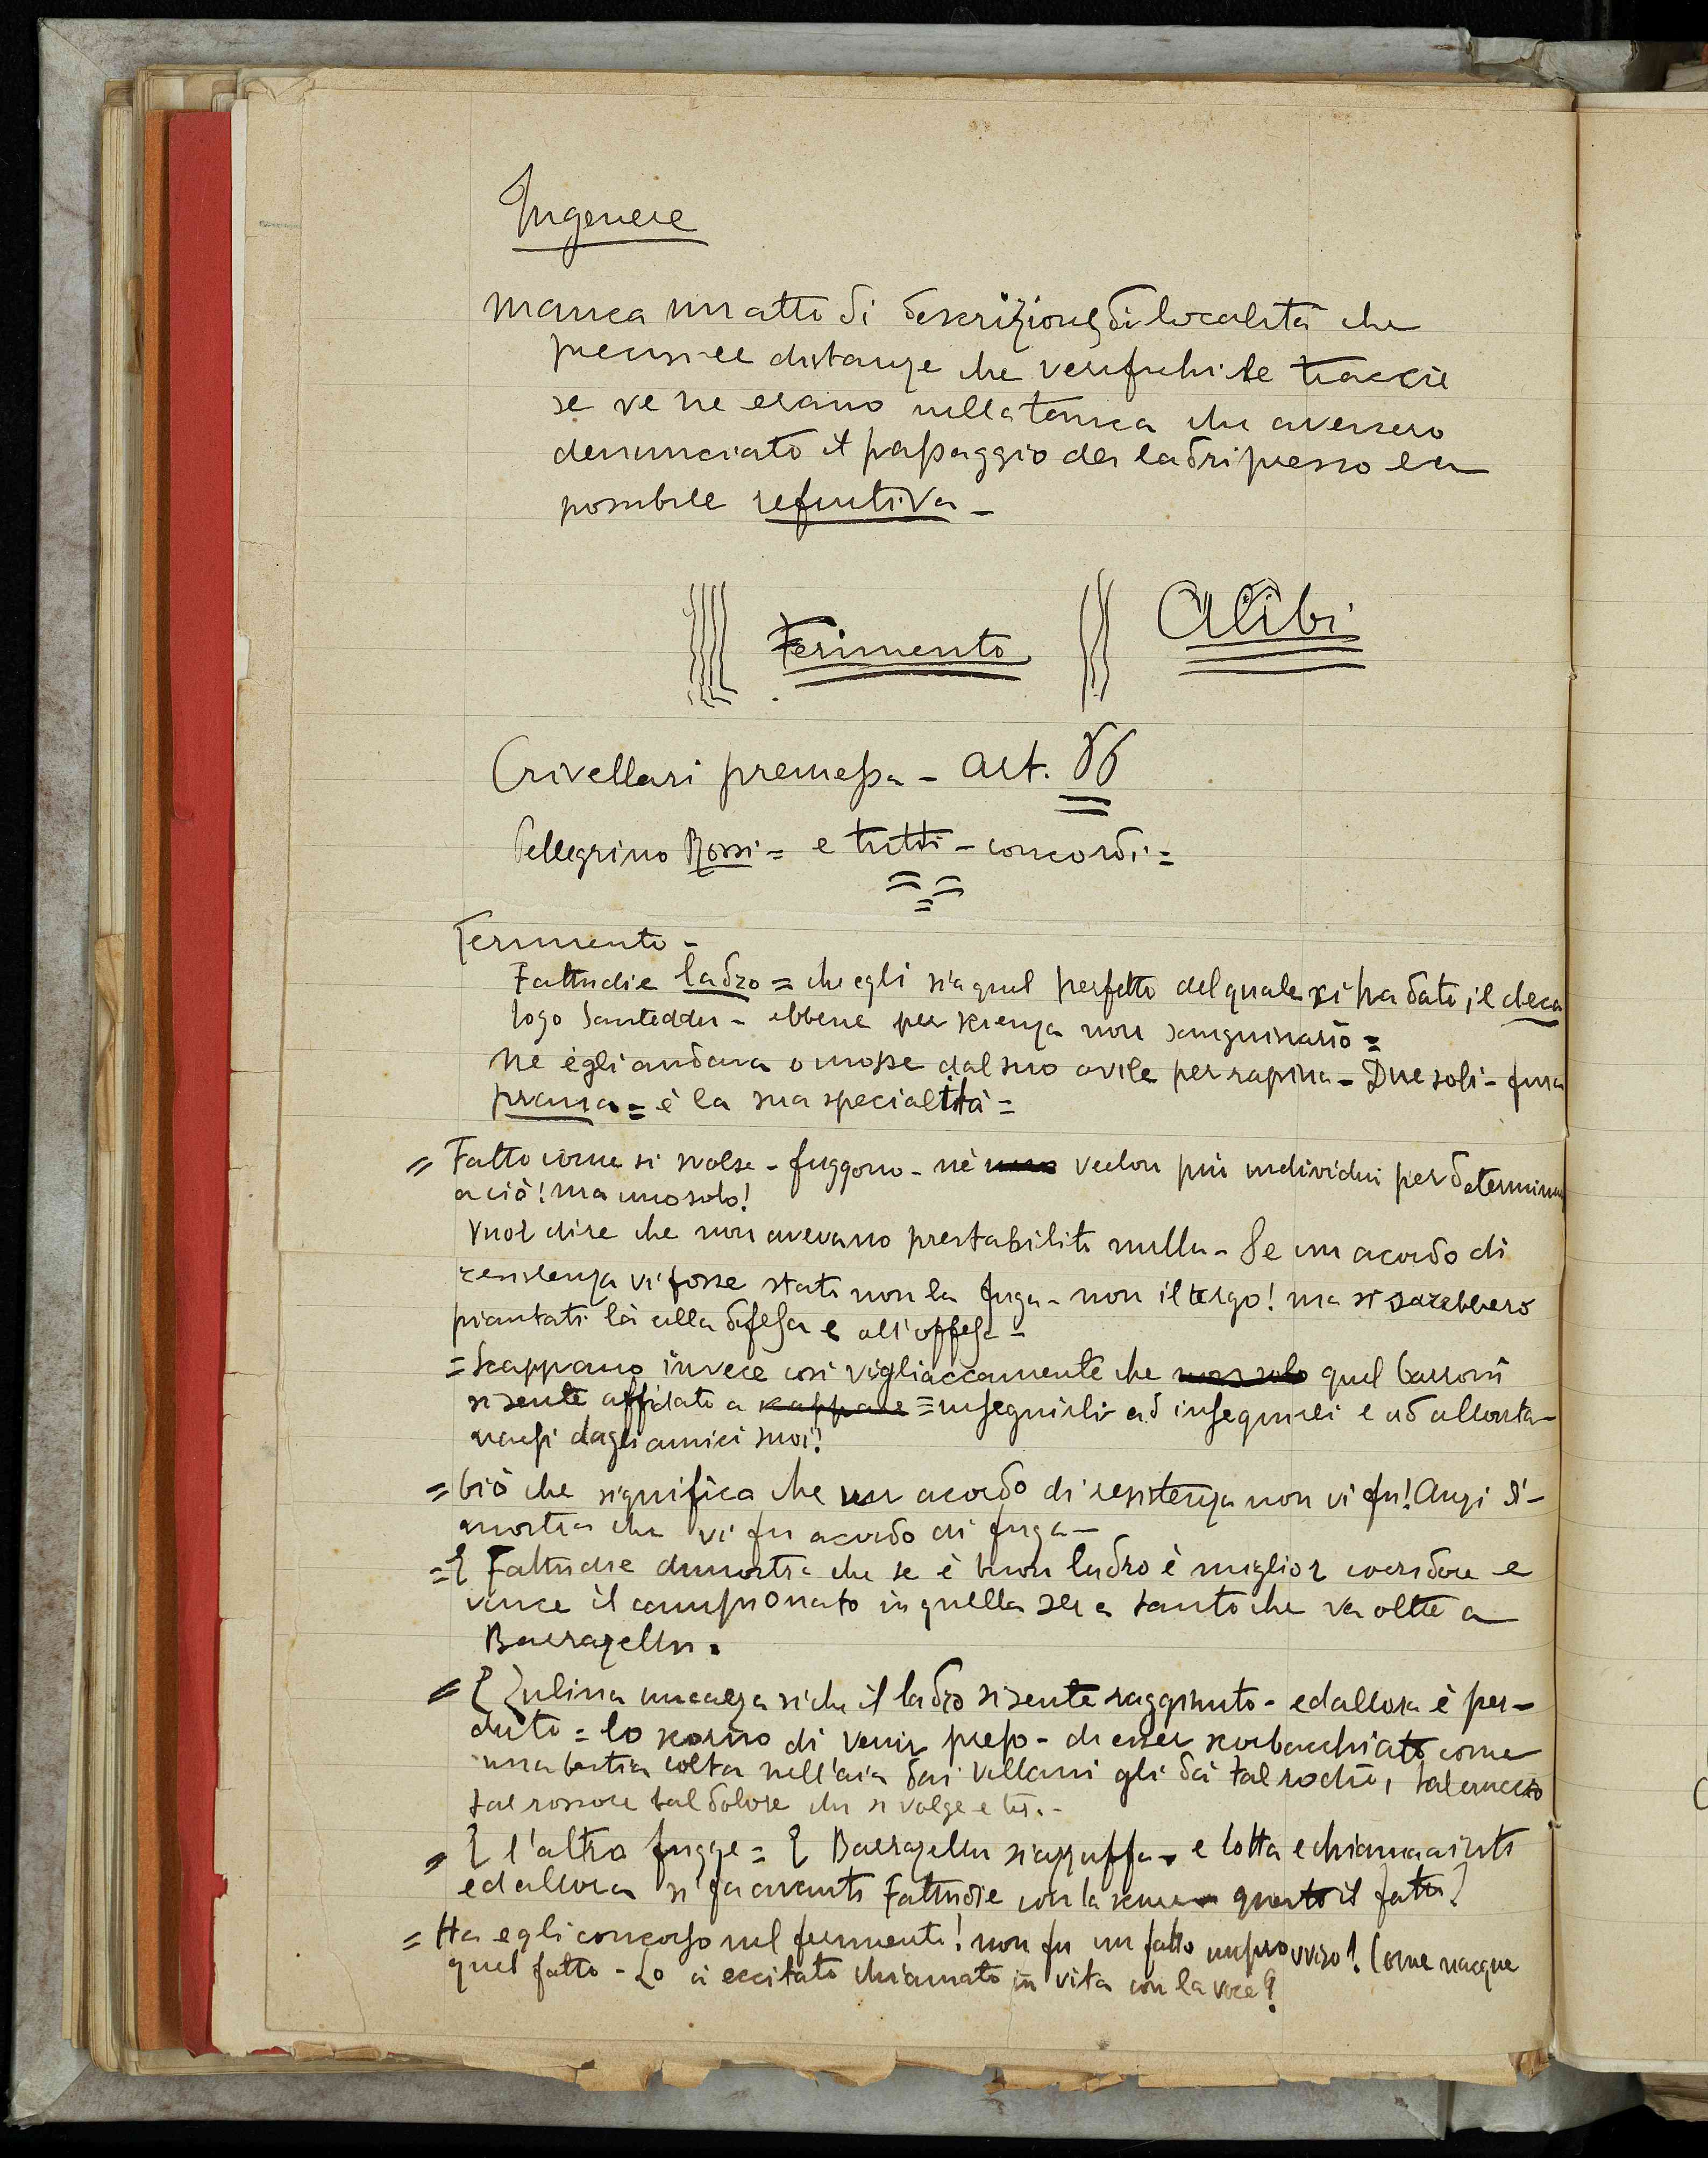 Ingenere
manca un atto di descrizione di località che
precisi le distanze che verifichi le traccie
se ve ne erano nella tanca che avessero
denunciato il passaggio dei ladri presso la
possibile refurtiva -
Ferimento Alibi
Crivellari premessa - Art.
Pellegrino Rossi = e tutti - concordi =
Ferimento -
Fattudie ladro = che egli sia quel perfetto del quale ci ha dato il deca
logo Santeddu - ebbene per scienza non sanguinario =
Ne egli andava o mosse dal suo ovile per rapina - Due soli - fura
= è la sua specialità =
= Fatto come si svolse - fuggono - nè vedon più individui per determinar
a ciò! ma uno solo!
Vuol dire che non avevano prestabilito nulla - Se un acordo di
resistenza vi fosse stato non la fuga - non il tergo! ma si sarebbero
piantati là alla difesa e all'offesa -
= Scappano invece così vigliaccamente che non solo quel
si sente affidato a scappare = inseguirli ad inseguirli e ad allonta-
narsi dagli amici suoi!
= Ciò che significa che un acordo di resistenza non vi fu! Anzi di-
mostra che vi fu acordo di fuga -
= E Fattudie dimostra che se è buon ladro è miglior corridore e
vince il campionato in quella sera tanto che va oltre a
Barrazellu.
= E Zulina incalza sì che il ladro si sente raggiunto - ed allora è per-
duto = lo scorno di venir preso - di esser scorbacchiato come
una bestia colta nell'aia dai villani gli dà tal
tal rossore tal dolore che si volge e tira -
= E l'altro fugge = E Barrazellu si azzuffa - e lotta e chiama aiuto
ed allora si fa avanti Fattudie con la scure - questo il fatto?
= Ha egli concorso nel ferimento! non fu un fatto improvviso! Come nacque
quel fatto - Lo a eccitato chiamato in vita con la voce?